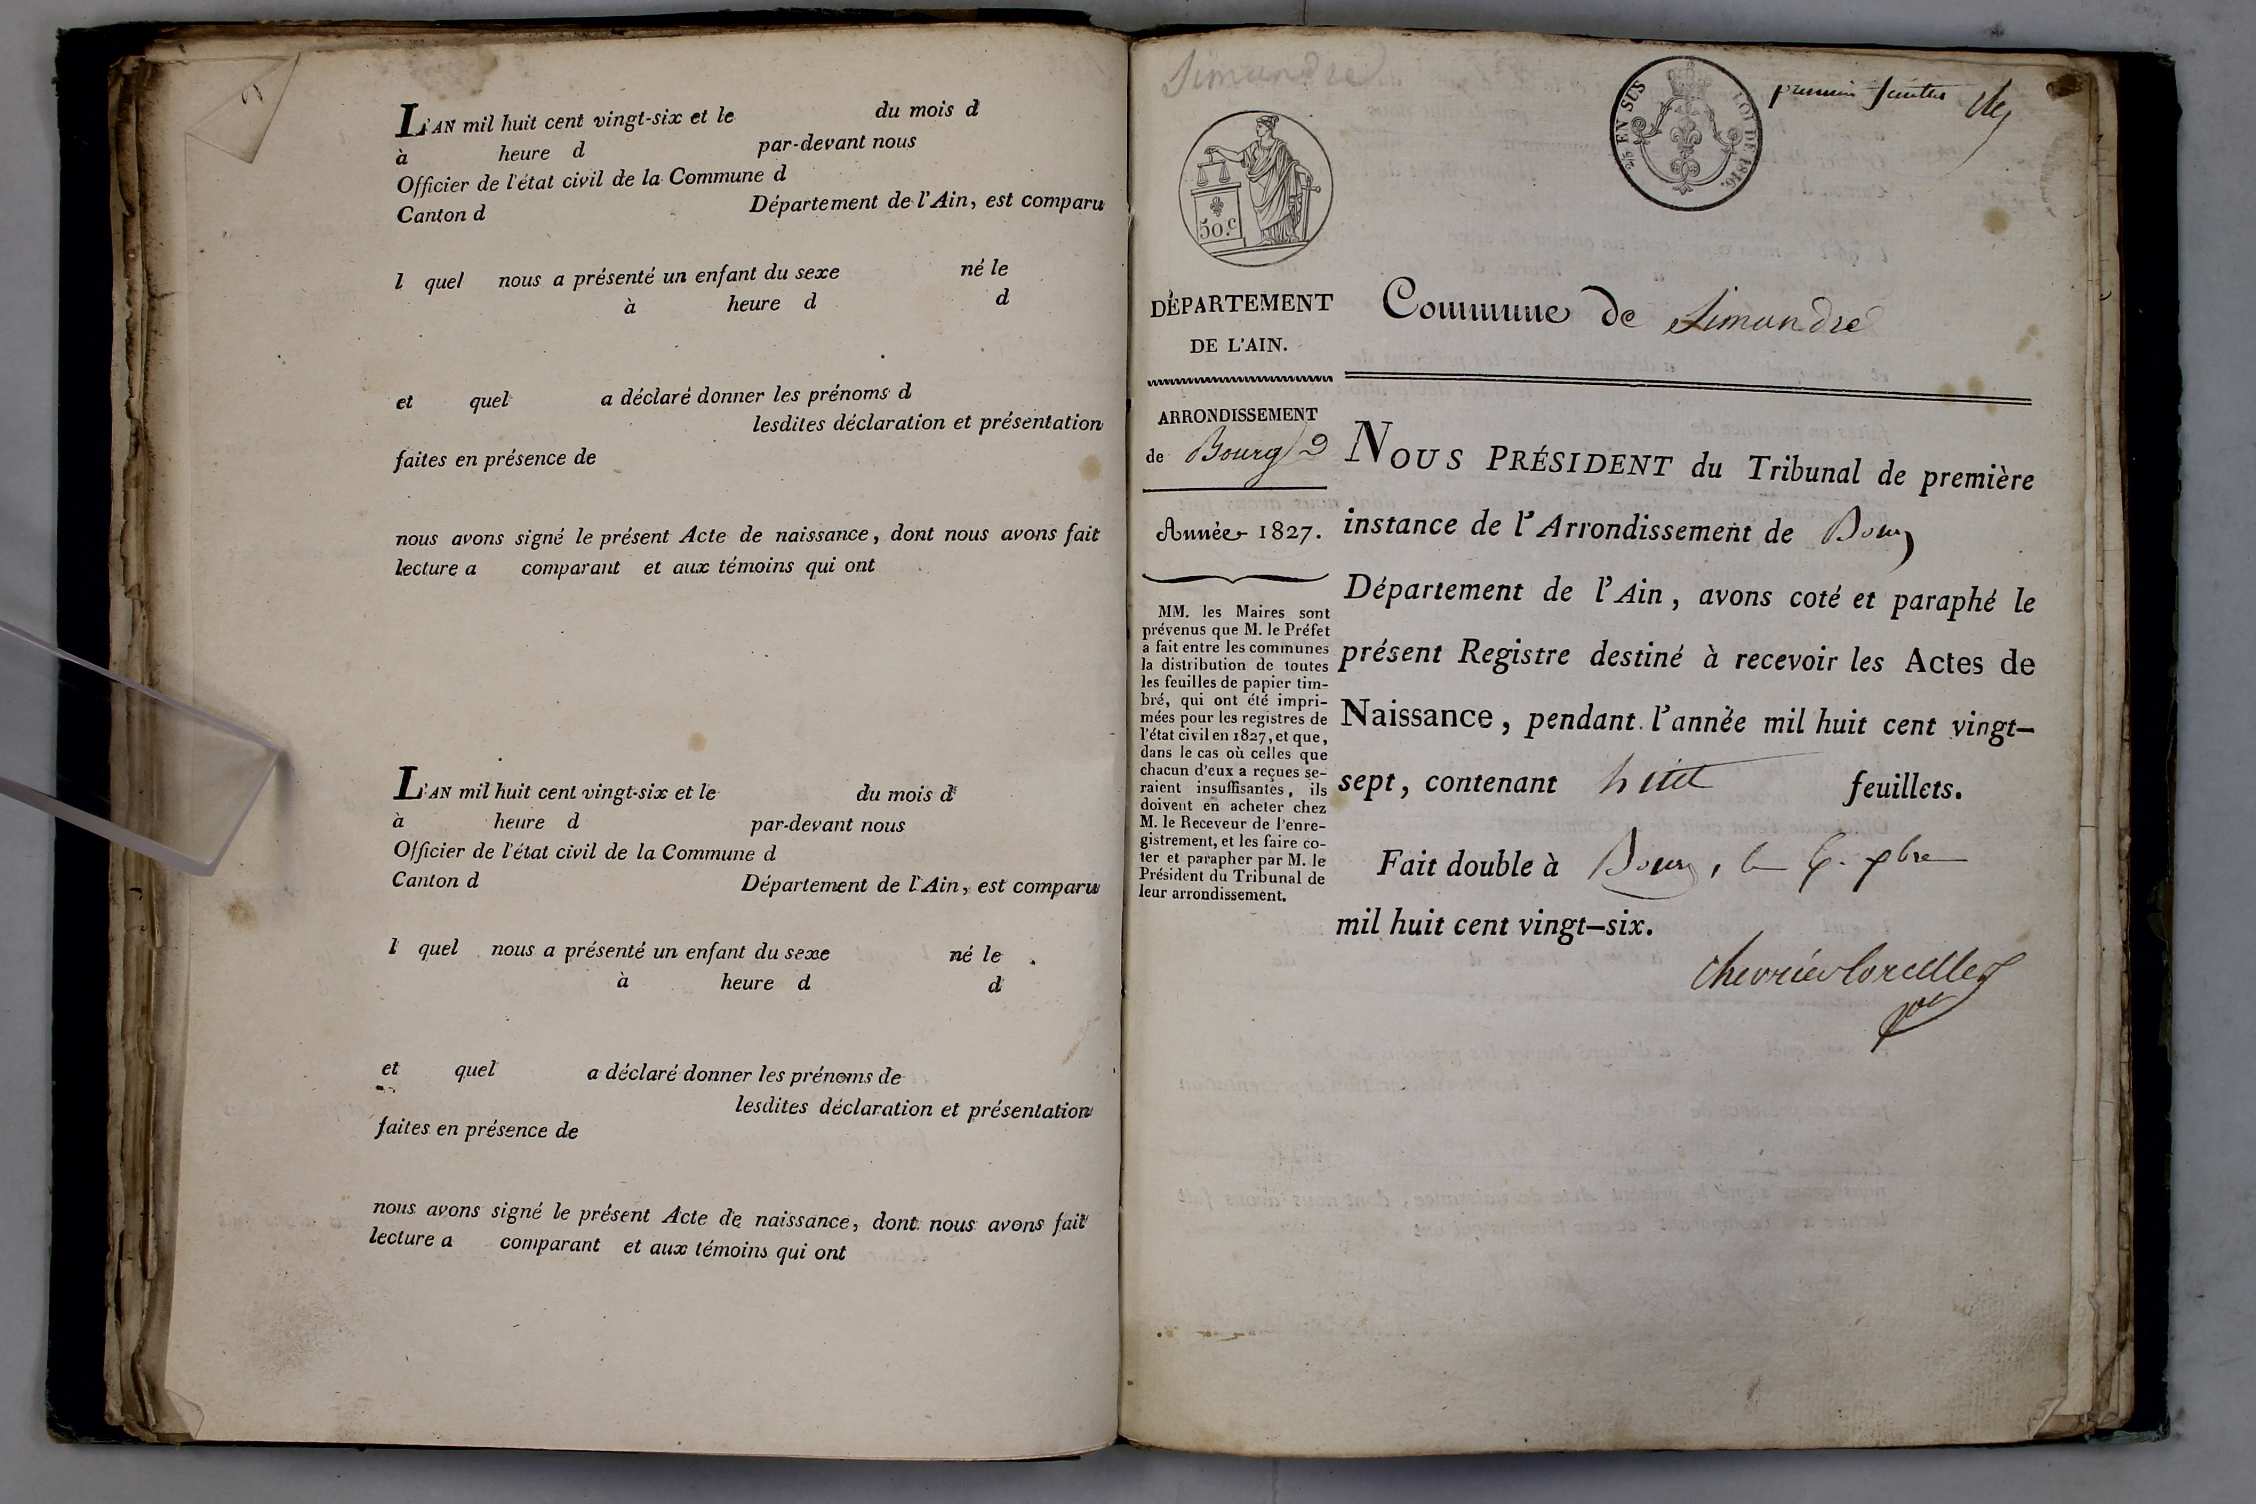 L'AN mil huit cent vingt-six et le du mois d
à heure d par-devant nous
Officier de l'état civil de la Commune d
Canton d Département de l'Ain, est comparu
l quel nous a présenté un enfant du sexe né le
à heure d d
et quel a déclaré donner les prénoms d
lesdites déclaration et présentation
faites en présence de
nous avons signé le présent Acte de naissance, dont nous avons fait
lecture a comparant et aux témoins qui ont
L'AN mil huit cent vingt-six et le du mois d
à heure d par-devant nous
Officier de l'état civil de la Commune d
Canton d Département de l'Ain, est comparu
l quel nous a présenté un enfant du sexe né le
à heure d d
et quel a déclaré donner les prénoms de
lesdites déclaration et présentation
faites en présence de
nous avons signé le présent Acte de naissance, dont nous avons fait
lecture a comparant et aux témoins qui ont
Simandre
50.c
EN SUS LOI DE 1816.
premier feuillet
DÉPARTEMENT
DE L'AIN.
ARRONDISSEMENT
de Bourg
Année 1827.
MM. les Maires sont
prévenus que M. le Préfet
a fait entre les communes
la distribution de toutes
les feuilles de papier tim-
bré, qui ont été impri-
mées pour les registres de
l'état civil en 1827, et que,
dans le cas où celles que
chacun d'eux a reçues se-
raient insuffisantes, ils
doivent en acheter chez
M. le Receveur de l'enre-
gistrement, et les faire co-
ter et parapher par M. le
Président du Tribunal de
leur arrondissement.
Commune de Simandre
NOUS PRÉSIDENT du Tribunal de première
instance de l'Arrondissement de Bourg
Département de l'Ain, avons coté et paraphé le
présent Registre destiné à recevoir les Actes de
Naissance, pendant l'année mil huit cent vingt-
sept, contenant huit feuillets.
Fait double à Bourg, le
mil huit cent vingt-six.
Chevrier Corcelles